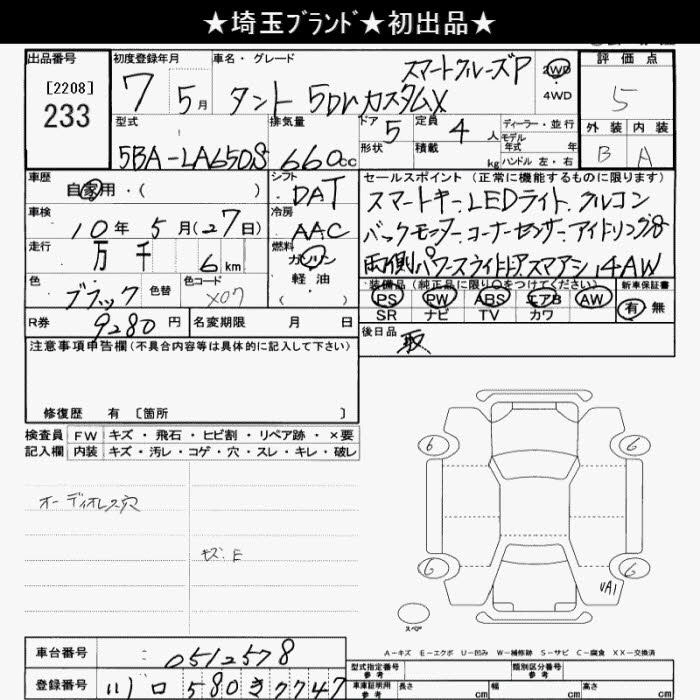 ★埼玉ﾌﾞﾗﾝﾄﾞ★初出品★
出品番号
[2208]
233
初度登録年月
7年 5月
車名・グレード
スマートクルーズP
タント 5Dr カスタムX
2WD
・
4WD
評価点
5
外装 内装
B A
型式
5BA-LA650S
排気量
660cc
ドア
5
形状
定員
4人
積載
kg
ディーラー・並行
モデル
年式 年
ハンドル 左・右
車歴
自家用・( )
車検
10年 5月(27日)
走行
万 千 6km
色
ブラック
色替
色コード
X07
シフト
DAT
冷房
AAC
燃料
ガソリン
・
軽油
( )
セールスポイント (正常に機能するものに限ります)
スマートキー、LEDライト、クルコン
バックモニター、コーナーセンサー、アイドリング
両側パワースライドドア スマアシ 14AW
装備品(純正品に限り○をつけてください)
PS PW ABS エアB AW
SR ナビ TV カワ
新車保証書
有・無
後日品
取
R券
9280円
名変期限 月 日
注意事項申告欄(不具合内容等は具体的に記入して下さい)
修復歴 有 〔箇所 〕
検査員
記入欄
FW キズ・飛石・ヒビ割・リペア跡・×要
内装 キズ・汚レ・コゲ・穴・スレ・キレ・破レ
オーディオレス穴
キズ:E
6 6
6 6
UA1
スペア
A−キズ E−エクボ U−凹み W−補修跡 S−サビ C−腐食 XX−交換済
車台番号
0512578
登録番号
川口 580 き 7747
型式指定番号
参考
類別区分番号
参考
車庫証明用
参考
長さ cm 幅 cm 高さ cm